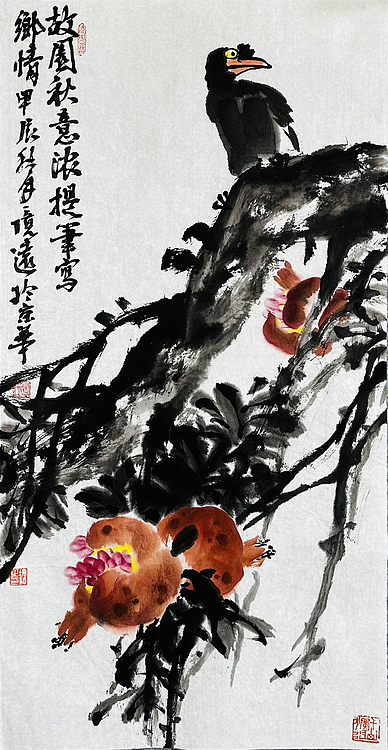 故園秋意浓提筆寫
鄉情甲辰秋月境遠於京華